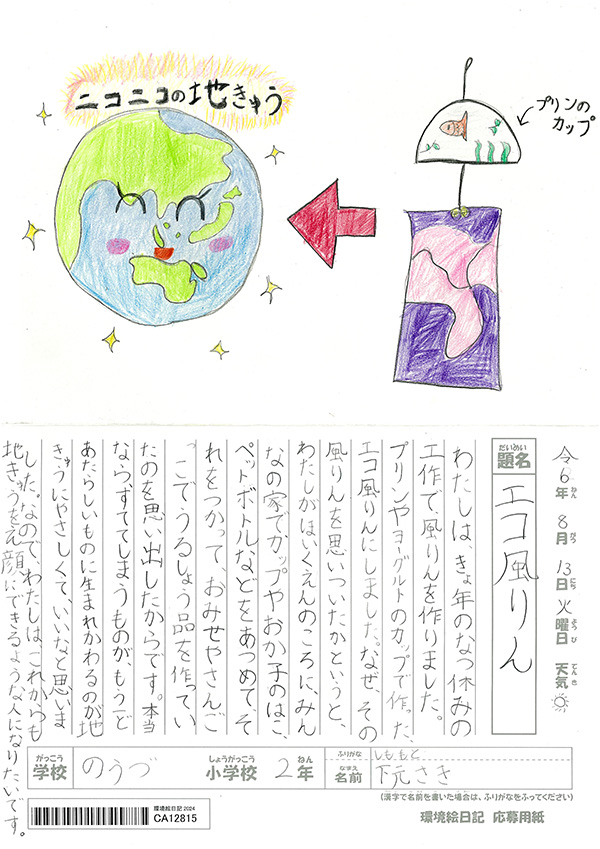 ニコニコの地きゅう
プリンの
カップ
令6年8月13日火曜日 天気
ねん
がつ
にち
ようび
てんき
だいめい
題名
エコ風りん
わたしは、きょ年のなつ休みの
工作で風りんを作りました。
プリンやヨーグルトのカップで作った、
エコ風りんにしました。なぜ、その
風りんを思いついたかというと、
わたしがほいくえんのころに、みん
なの家でカップやおか子のはこ、
ペットボトルなどをあつめて、そ
れをつかって、おみせやさんご
っこでうるしょう品を作ってい
たのを思い出したからです。本当
なら、すててしまうものが、もう一ど
あたらしいものに生まれかわるのが地
きゅうにやさしくて、いいなと思いま
した。なので、わたしは、これからも
地きゅうをえ顔にできるような人になりたいです。
がっこう
学校
のうづ
しょうがっこう
小学校
2年
ねん
ふりがな
しももと
なまえ
名前
下元さき
(漢字で名前を書いた場合は、ふりがなをふってください)
環境絵日記 2024
CA12815
環境絵日記 応募用紙